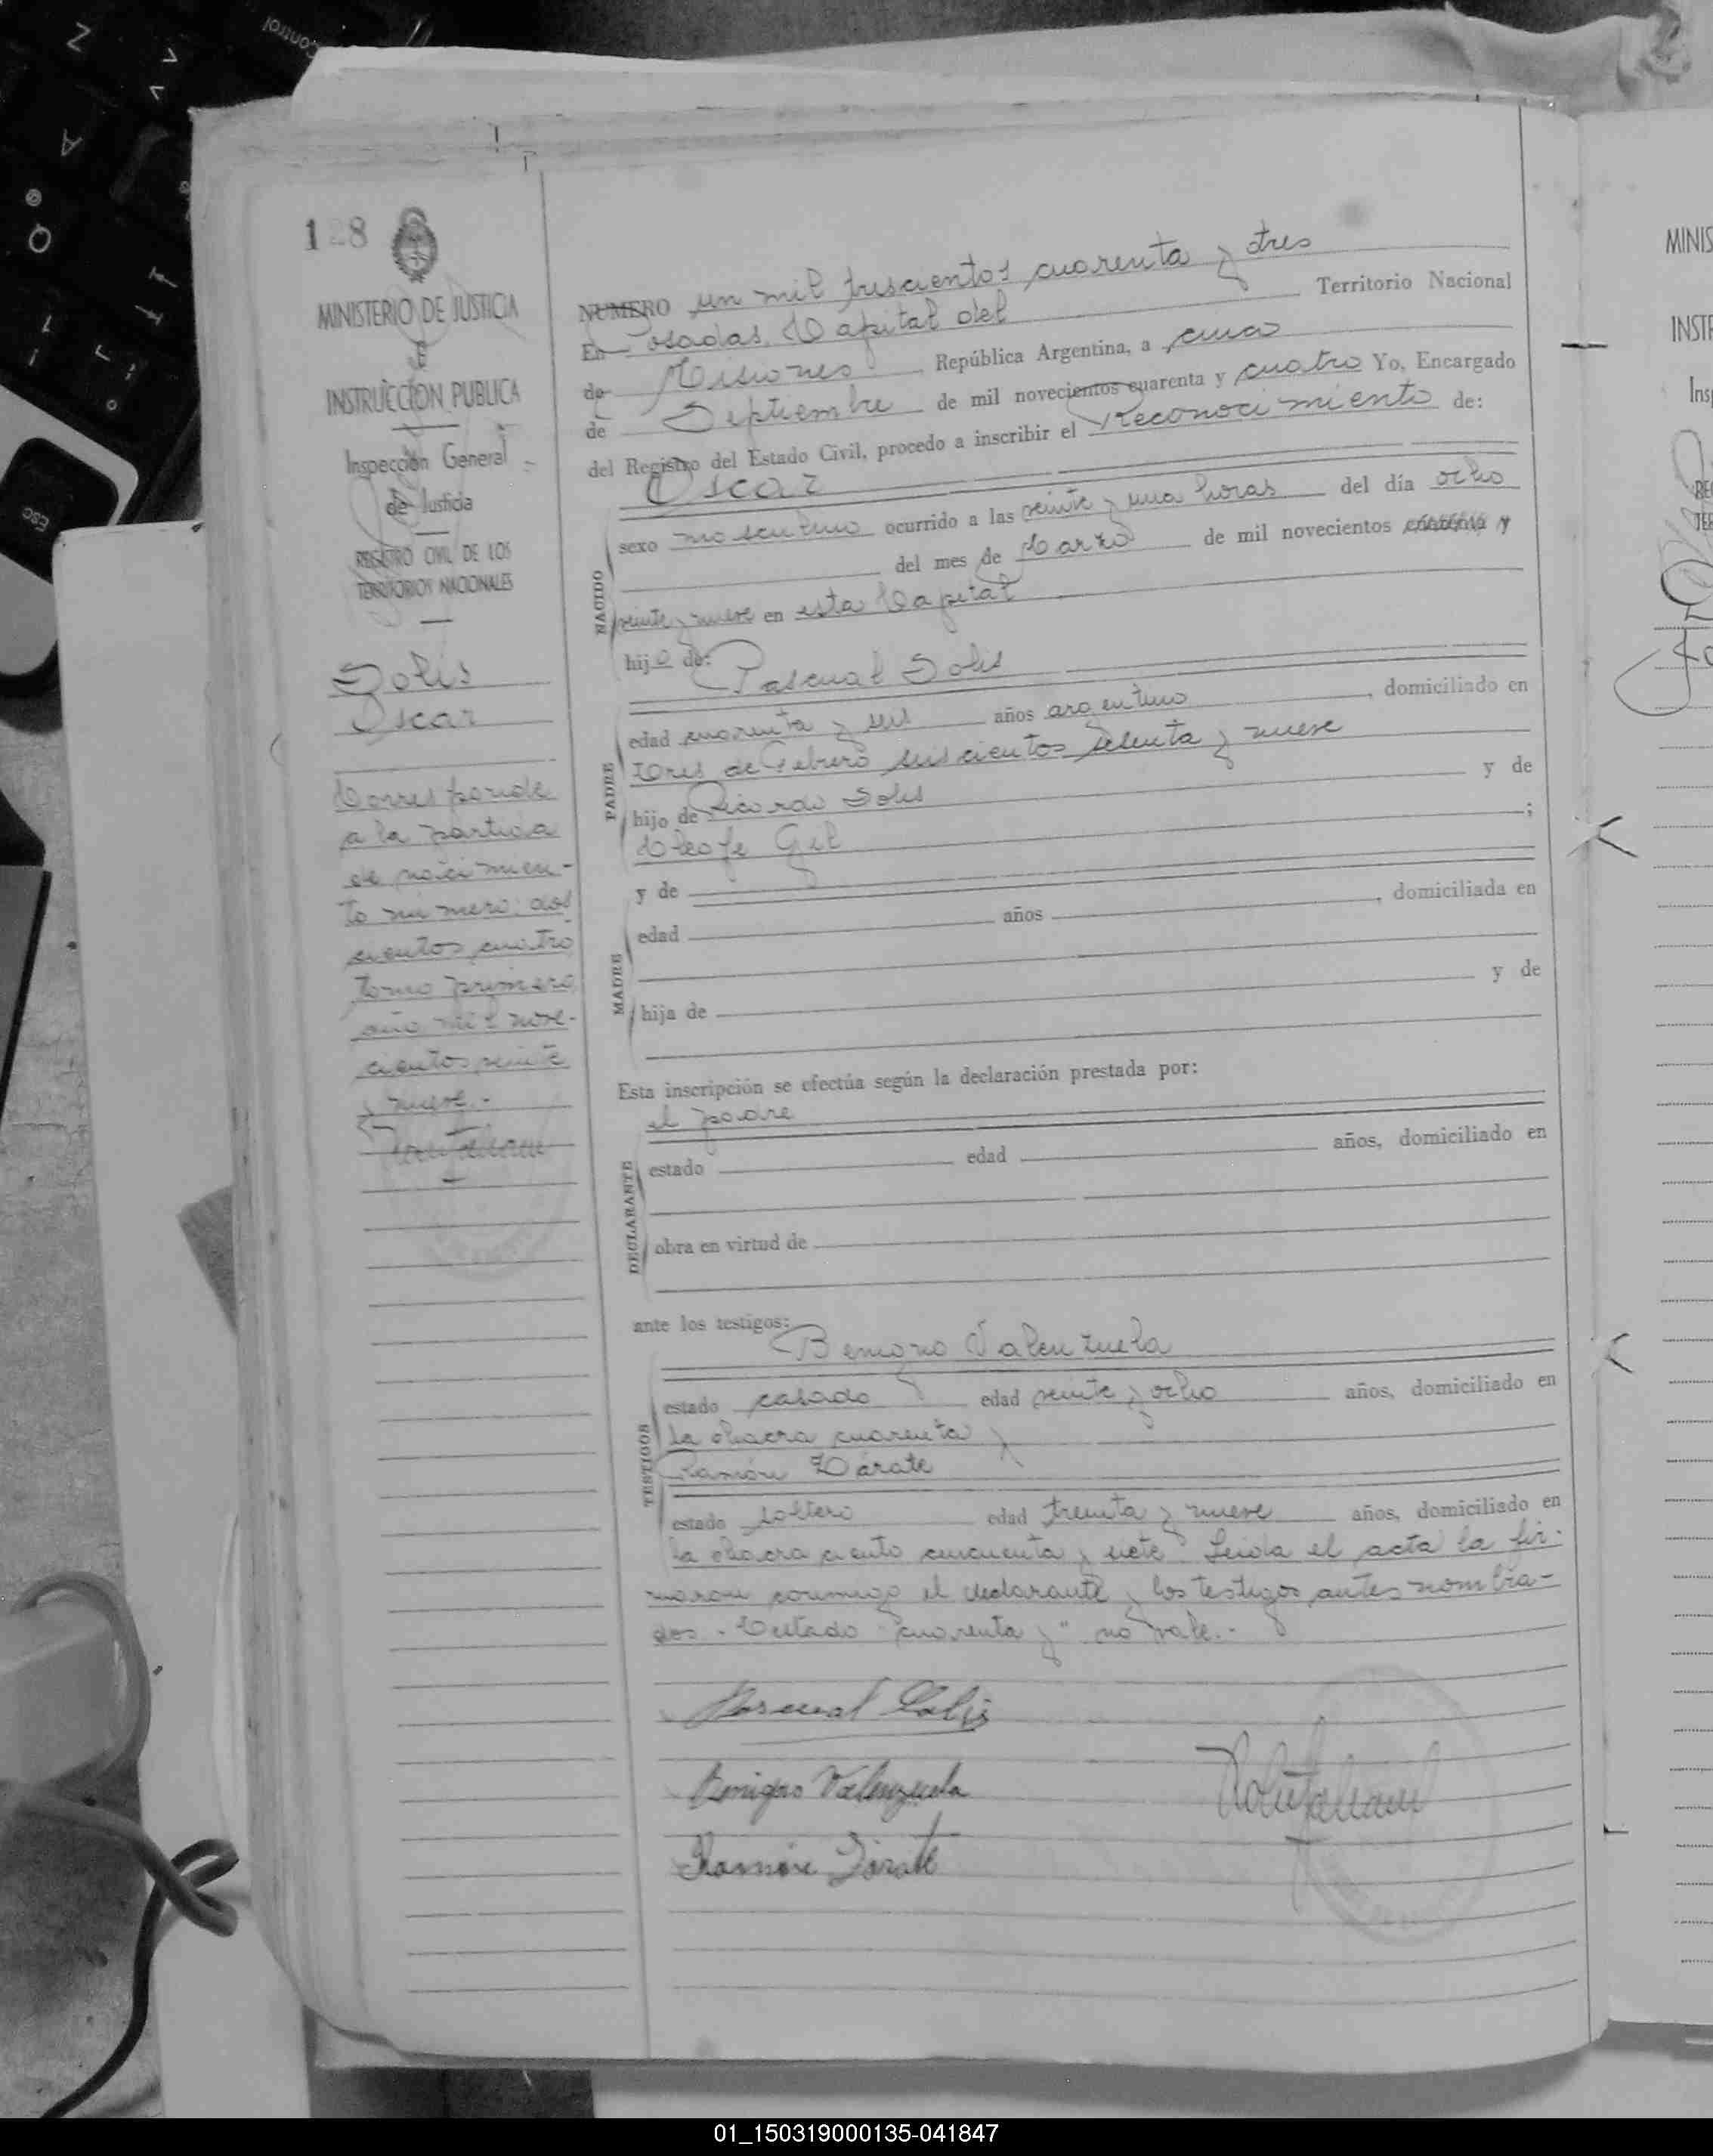 Control
Z
A
Q
Esc
128
MINISTERIO DE JUSTICIA
E
INSTRUCCION PUBLICA
Inspección General
de Justicia
REGISTRO CIVIL DE LOS
TERRITORIOS NACIONALES
Solis
Oscar
Corresponde
a la partida
de nacimien-
to número: dos
cientos cuatro
tomo primero
año mil nove-
cientos veinte
y nueve.-
NUMERO un mil trescientos cuarenta y tres
En Posadas, Capital del Territorio Nacional
de Misiones, República Argentina, a cinco
de Septiembre de mil novecientos cuarenta y cuatro Yo, Encargado
del Registro del Estado Civil, procedo a inscribir el Reconocimiento de:
Oscar
NACIDO
sexo masculino ocurrido a las veinte y una horas del día ocho
del mes de Marzo de mil novecientos cuarenta y
veinte y nueve en esta Capital
hijo de: Pascual Solis
PADRE
edad cuarenta y seis años argentino, domiciliado en
Tres de Febrero seiscientos setenta y nueve
hijo de Ricardo Solis y de
Cleofe Gil;
y de
MADRE
edad años, domiciliada en
hija de y de
Esta inscripción se efectúa según la declaración prestada por:
el padre
DECLARANTE
estado edad años, domiciliado en
obra en virtud de
ante los testigos:
Benigno Valenzuela
TESTIGOS
estado casado edad veinte y ocho años, domiciliado en
la chacra cuarenta y
Ramón Zárate
estado soltero edad treinta y nueve años, domiciliado en
la chacra ciento cincuenta y siete. Leida el acta la fir-
maron conmigo el declarante y los testigos antes nombra-
dos. Testado "cuarenta y" no vale.-
Pascual Solis
Benigno Valenzuela
Ramón Zárate
MINIS
INSTR
Ins
RE
TER
01_150319000135-041847